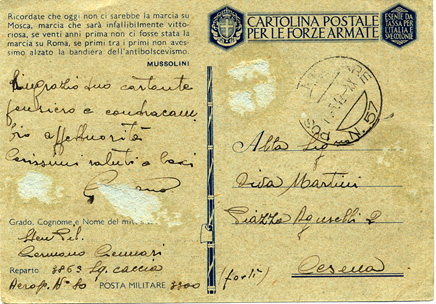 Ricordate che oggi non ci sarebbe la marcia su
Mosca, marcia che sarà infallibilmente vitto-
riosa, se venti anni prima non ci fosse stata la
marcia su Roma, se primi tra i primi non aves-
simo alzato la bandiera dell'antibolscevismo.
MUSSOLINI
CARTOLINA POSTALE
PER LE FORZE ARMATE
ESENTE DA
TASSA PER
L'ITALIA E
SUE COLONIE
Ringrazio suo costante
pensiero e
affettuosità
Carissimi saluti e baci
N. 57
Alla
Diva Martini
Piazza Aguselli 2
(Forlì) Cesena
Grado, Cognome e Nome del
Germano Gennari
Reparto 3863 Sq. Caccia
Aerop. N° 80 POSTA MILITARE 3300